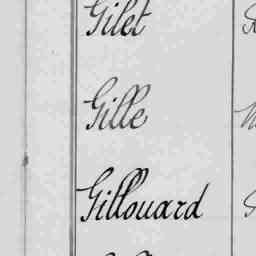 Gilet
Gille
Gillouard